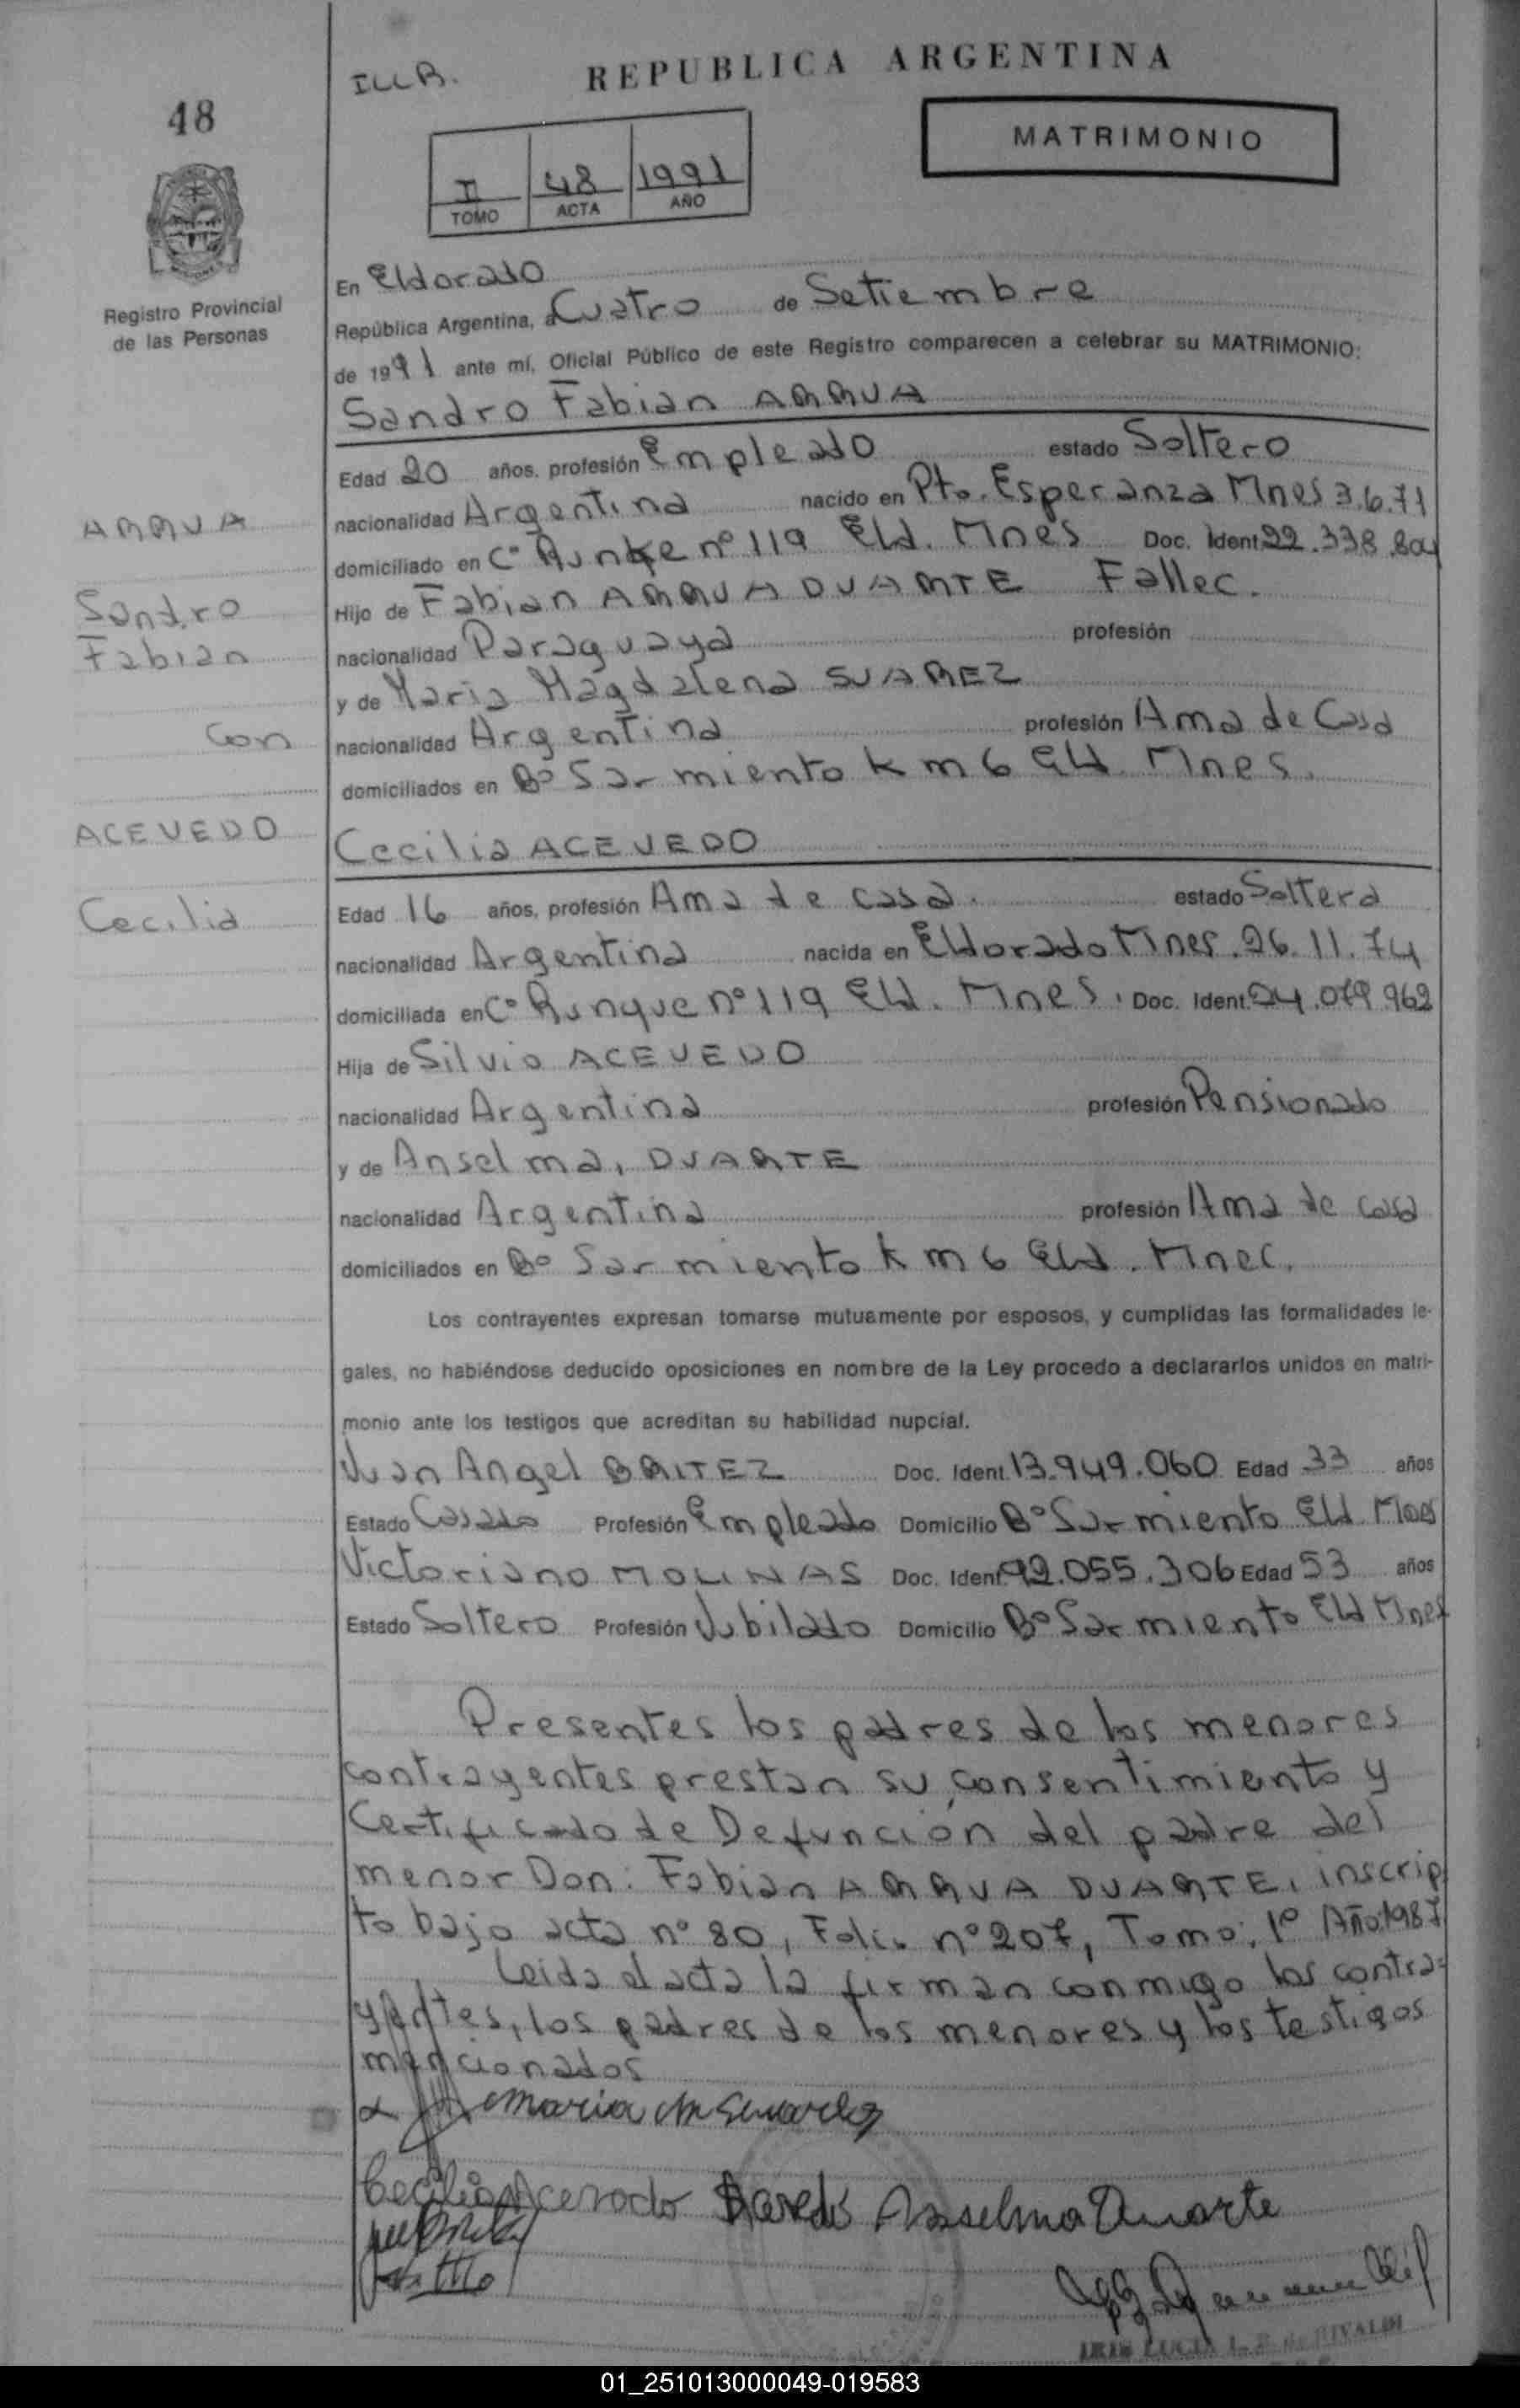 ILLR.
REPUBLICA ARGENTINA
48
MATRIMONIO
II 48 1991
TOMO ACTA AÑO
Registro Provincial
de las Personas
En Eldorado
República Argentina, a Cuatro de Setiembre
de 1991 ante mí, Oficial Público de este Registro comparecen a celebrar su MATRIMONIO:
Sandro Fabian ARRUA
Edad 20 años, profesión Empleado estado Soltero
ARRUA
nacionalidad Argentina nacido en Pto. Esperanza Mnes 3.6.71
domiciliado en Cº Runke nº 119 Eld. Mnes Doc. Ident. 22.338.
Sandro
Hijo de Fabian ARRUA DUARTE Fallec.
Fabian
nacionalidad Paraguaya profesión
y de Maria Magdalena SUAREZ
Con
nacionalidad Argentina profesión Ama de Casa
domiciliados en Bº Sarmiento km 6 Eld. Mnes.
ACEVEDO
Cecilia ACEVEDO
Cecilia
Edad 16 años, profesión Ama de casa. estado Soltera
nacionalidad Argentina nacida en Eldorado Mnes. 26.11.74
domiciliada en Cº Runque nº 119 Eld. Mnes. Doc. Ident. 24.079.962
Hija de Silvio ACEVEDO
nacionalidad Argentina profesión Pensionado
y de Anselma, DUARTE
nacionalidad Argentina profesión Ama de casa
domiciliados en Bº Sarmiento km 6 Eld. Mnes.
Los contrayentes expresan tomarse mutuamente por esposos, y cumplidas las formalidades le-
gales, no habiéndose deducido oposiciones en nombre de la Ley procedo a declararlos unidos en matri-
monio ante los testigos que acreditan su habilidad nupcial.
Juan Angel BRITEZ Doc. Ident. 13.949.060 Edad 33 años
Estado Casado Profesión Empleado Domicilio Bº Sarmiento Eld. Mnes
Victoriano MOLINAS Doc. Ident. 92.055.306 Edad 53 años
Estado Soltero Profesión Jubilado Domicilio Bº Sarmiento Eld Mnes
Presentes los padres de los menores
contrayentes prestan su consentimiento y
Certificado de Defunción del padre del
menor Don: Fabian ARRUA DUARTE, inscrip
to bajo acta nº 80, Folio nº 207, Tomo: 1º Año:1987
Leida el acta la firman conmigo los contra=
yentes, los padres de los menores y los testigos
mencionados
Maria M
Cecilia Acevedo Anselma Duarte
IRIS LUCIA L. R. de RIVALDI
01_251013000049-019583